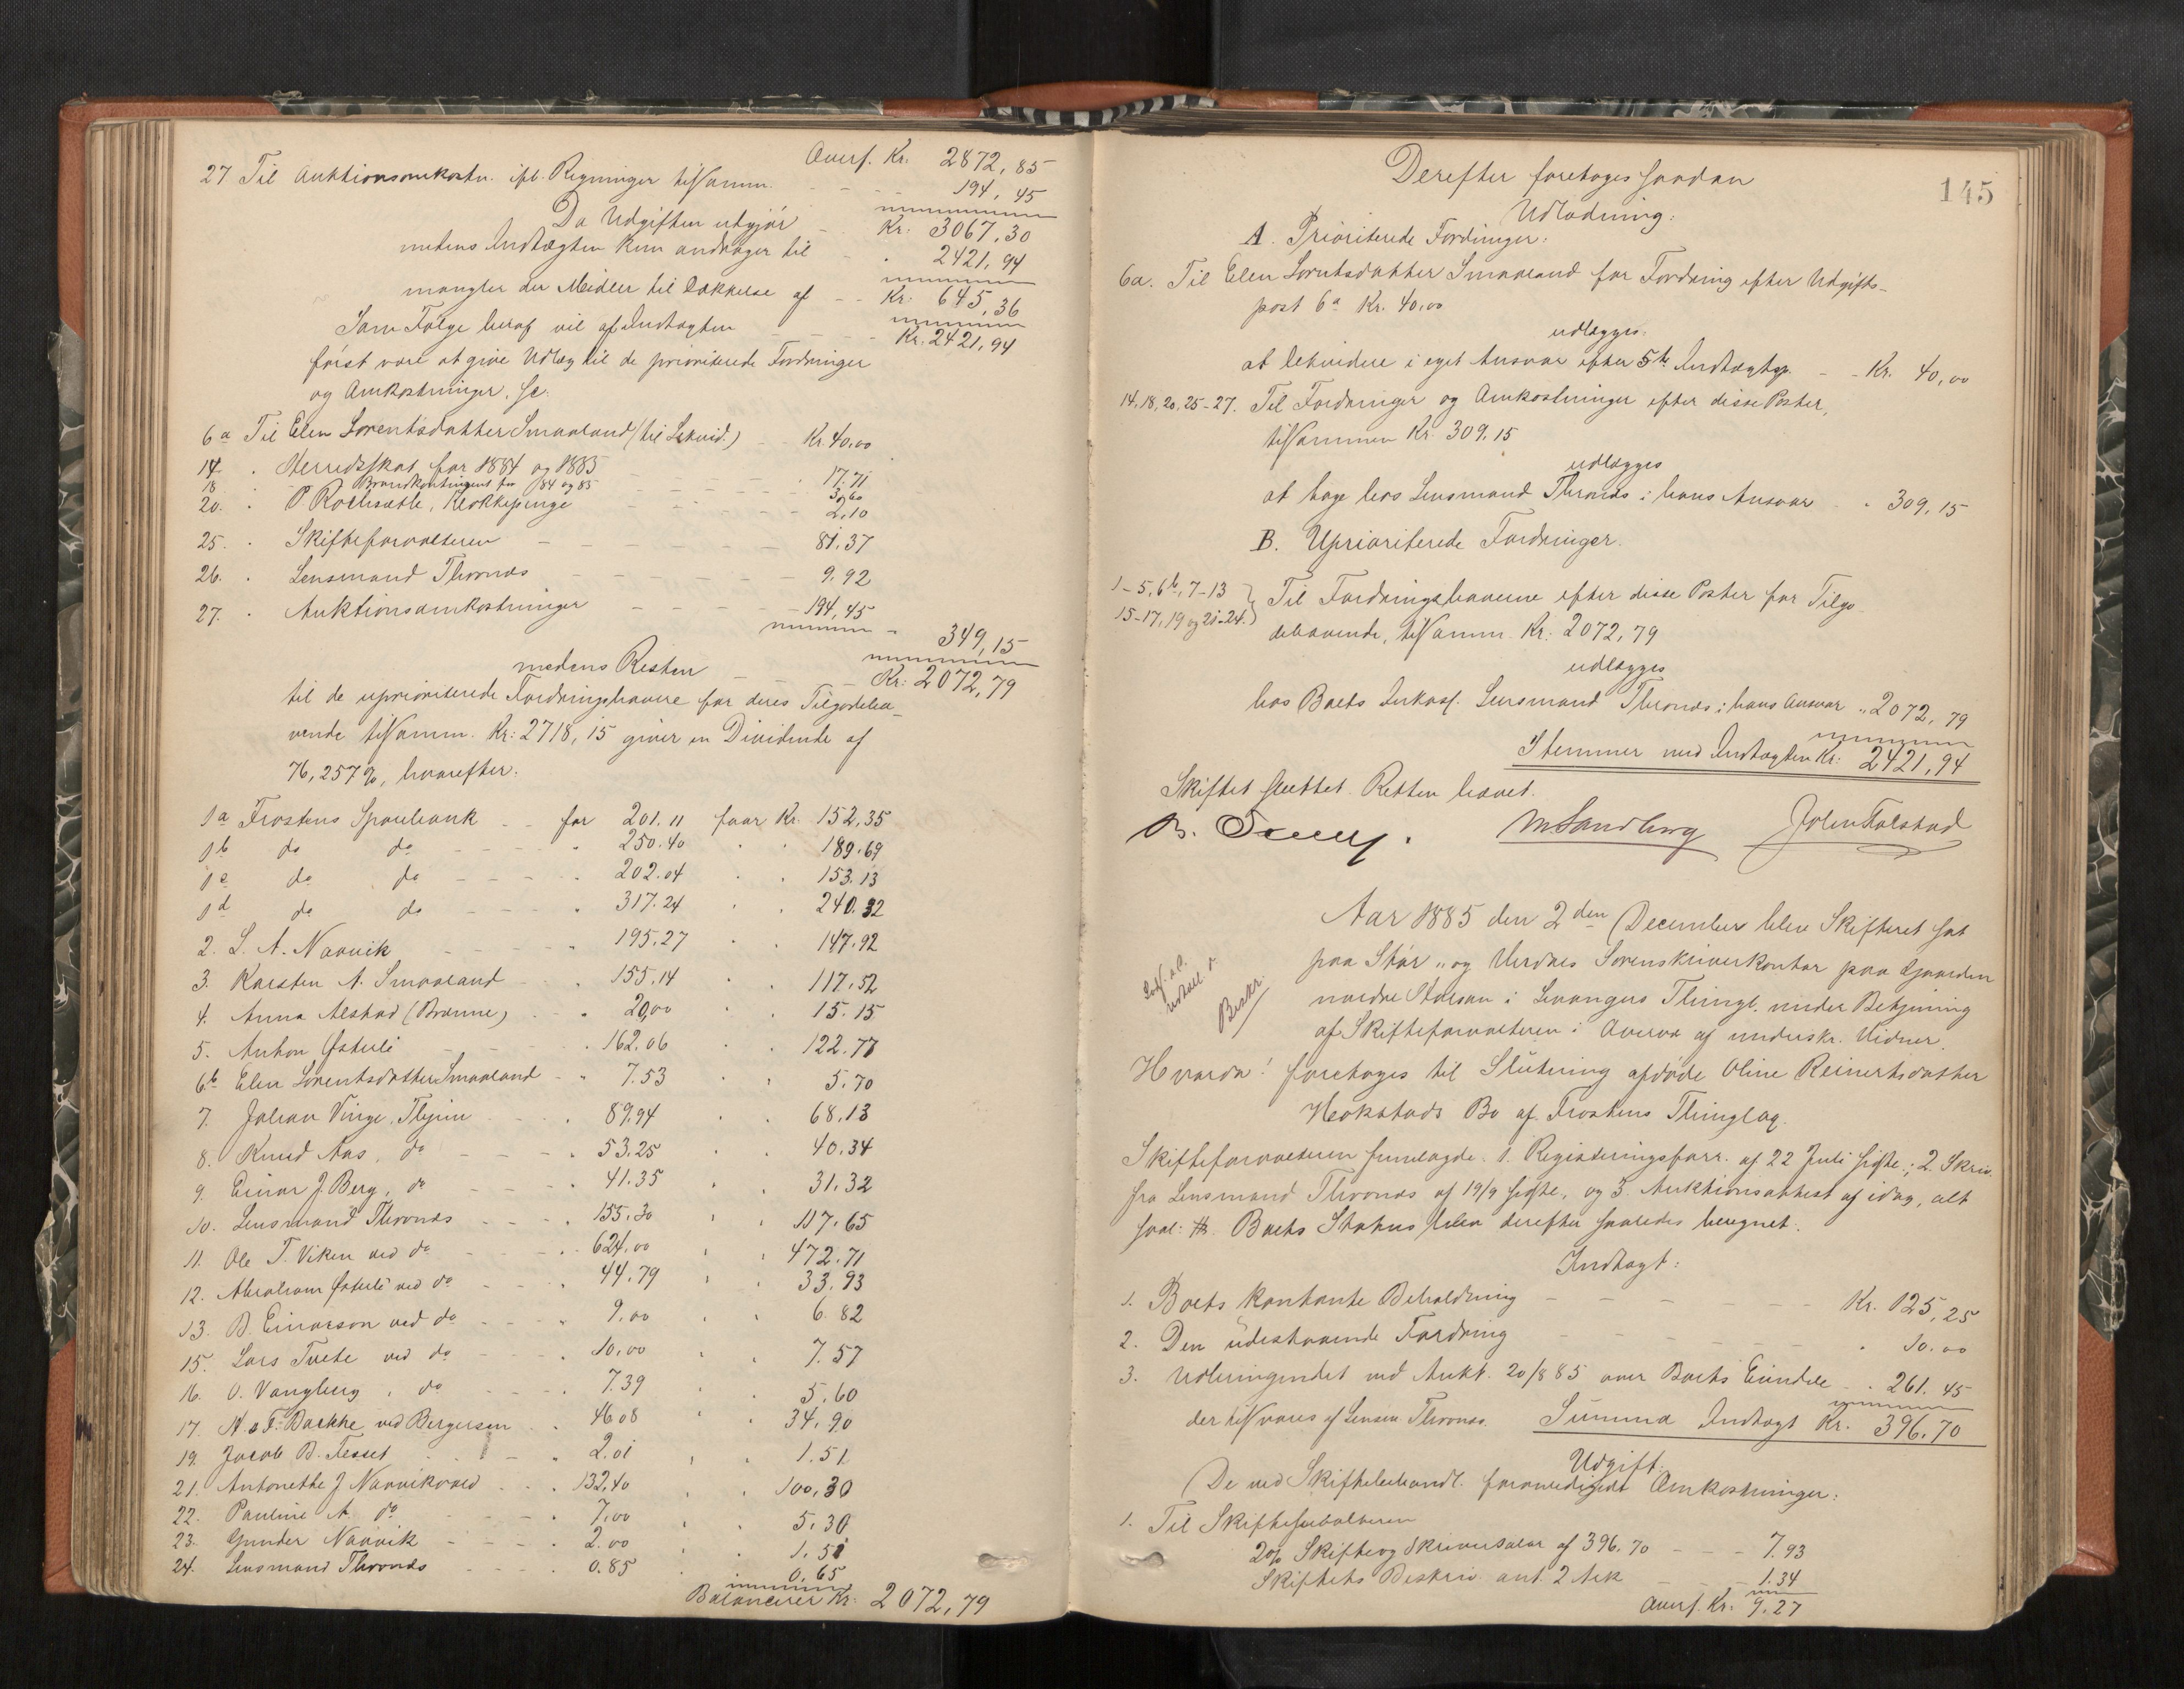 Overf. Kr. 2872,85
27 Til Auktionsomkostn. ifl. Regninger tilsamm. - - - 194,45
Da Udgiften udgjør - Kr. 3067,30
medens Indtægten kun andrager til - " 2421,94
mangler der Midler til Dækkelse af - - Kr. 645,36
Som Følge heraf vil af Indtægten - - - Kr. 2421,94
først være at give Udlæg til de prioriterede Fordringer
og Omkostninger, sc:
6a Til Elen Lorentsdatter Smaaland (til Likvid.) - Kr. 40,00
14. " Herredsskat for 1884 og 1885 - - - " 17.71
18 " Brandkontingent for 84 og 85 - - - 3,60
20. " P Rochsæthe, Klokkepenge - - - 2,10
25. " Skifteforvalteren - - - 81,37
26. " Lensmand Thronæs - - - 9.92
27. " Auktionsomkostninger - - - 194,45
- 349,15
medens Resten - - - Kr. 2072,79
til de uprioriterede Fordringshavere for deres Tilgodeha-
vende tilsamm. Kr: 2718,15 giver en Dividende af
76,257%, hvorefter:
1a Frostens Sparebank - - for 201.11 faar Kr. 152,35
1b do do - - - " 250.40 " " 189.69
1c do do - - - " 202.04 " " 153.13
1d do do - - - " 317.24 " " 240.32
2. L. A. Navvik - - " 195.27 " " 147.92
3. Karsten A. Smaaland - " 155.14 " " 117.52
4. Anna Alstad (Brænne) - " 20,00 " " 15.15
5. Anton Østerli - - " 162.06 " " 122.77
6b Elen Lorentsdatter Smaaland - " 7.53 " " 5.70
7. Johan Vinge, Thjem - - " 89,94 " " 68.13
8. Knud Aas, do - - - " 53.25 " " 40.34
9. Einar J. Berg, do - - - " 41.35 " " 31.32
10. Lensmand Thronæs - - - " 155.30 " " 117.65
11. Ole T. Viken ved do - - - " 624.00 " " 472.71
12. Abraham Østerli ved do - - " 44.79 " " 33.93
13. B. Einarson ved do - - - " 9.00 " " 6.82
15. Lars Tvete ved do - - - " 10.00 " " 7.57
16. O. Vangberg, do - - - " 7.39 " " 5.60
17. H. & F. Backke ved Bergersen - " 46 08 " " 34.90
19. Jacob B. Fesset - - - " 2.01 " " 1.51
21. Antonethe J Navvik ved - - " 132,40 " " 100,30
22. Pauline A. do - - - " 7.00 " " 5.30
23. Gunder Navvik - - - " 2.00 " " 1.51
24. Lensmand Thronæs - - - 0.85 " " 0.65
Balancerer Kr. 2072,79
145
Derefter foretoges saadan
Udlodning:
A. Prioriterede Fordringer:
6a. Til Elen Lorentsdatter Smaaland for Fordring efter Udgifts-
post 6a Kr. 40,00
udlægges:
at lekvidere i eget Ansvar efter 5te Indtægtsp. - - Kr. 40,00
14, 18, 20, 25-27. Til Fordringer og Omkostninger efter disse Poster,
tilsammen Kr. 309,15
udlægges
at tage hos Lensmand Thronæs i hans Ansvar - " 309,15
B. Uprioriterede Fordringer.
1-5, 6b, 7-13 } Til Fordringshaverne efter disse Poster for Tilgo-
15-17, 19 og 21-24. dehavende, tilsamm. Kr. 2072,79
udlægges
hos Boets Inkass. Lensmand Thronæs i hans Ansvar " 2072,79
Stemmer med Indtægten Kr. 2421,94
Skiftet sluttet. Retten hævet.
M Sandberg John Falstad
Aar 1885 den 2den December blev Skifteret sat
paa Stør- og Værdals Sorenskriverkontor paa Gaarden
nordre Staksan i Levangers Thingl. under Betjening
af Skifteforvalteren i Overvær af underskr. Vidner.
Beskr.
Hvorda! foretoges til Slutning afdøde Oline Reinertsdatter
Hokstads Bo af Frostens Thinglag.
Skifteforvalteren fremlagde 1. Registreringsforr. af 22 Juli sidstl.; 2. Skriv.
fra Lensmand Thronæs af 19/9 sidstl., og 3. Auktionsattest af idag, alt
saal: Boets Status blev derefter saaledes beregnet:
Indtægt:
1. Boets kontante Beholdning - - - Kr. 125,25
2. Den udestaaende Fordring - - - " 10.00
3. Udbringendet ved Aukt. 20/8 85 over Boets Eiendele - " 261.45
der tilsvares af Lensm. Thronæs. Summa Indtægt Kr. 396.70
Udgift.
De ved Skiftebehandl. foranledigede Omkostninger:
1. Til Skifteforvalteren
2% Skifte og Skriversalær af 396.70 - - 7.93
Skiftets Beskriv. ant. 2 Ark - - 1.34
Overf. Kr. 9.27